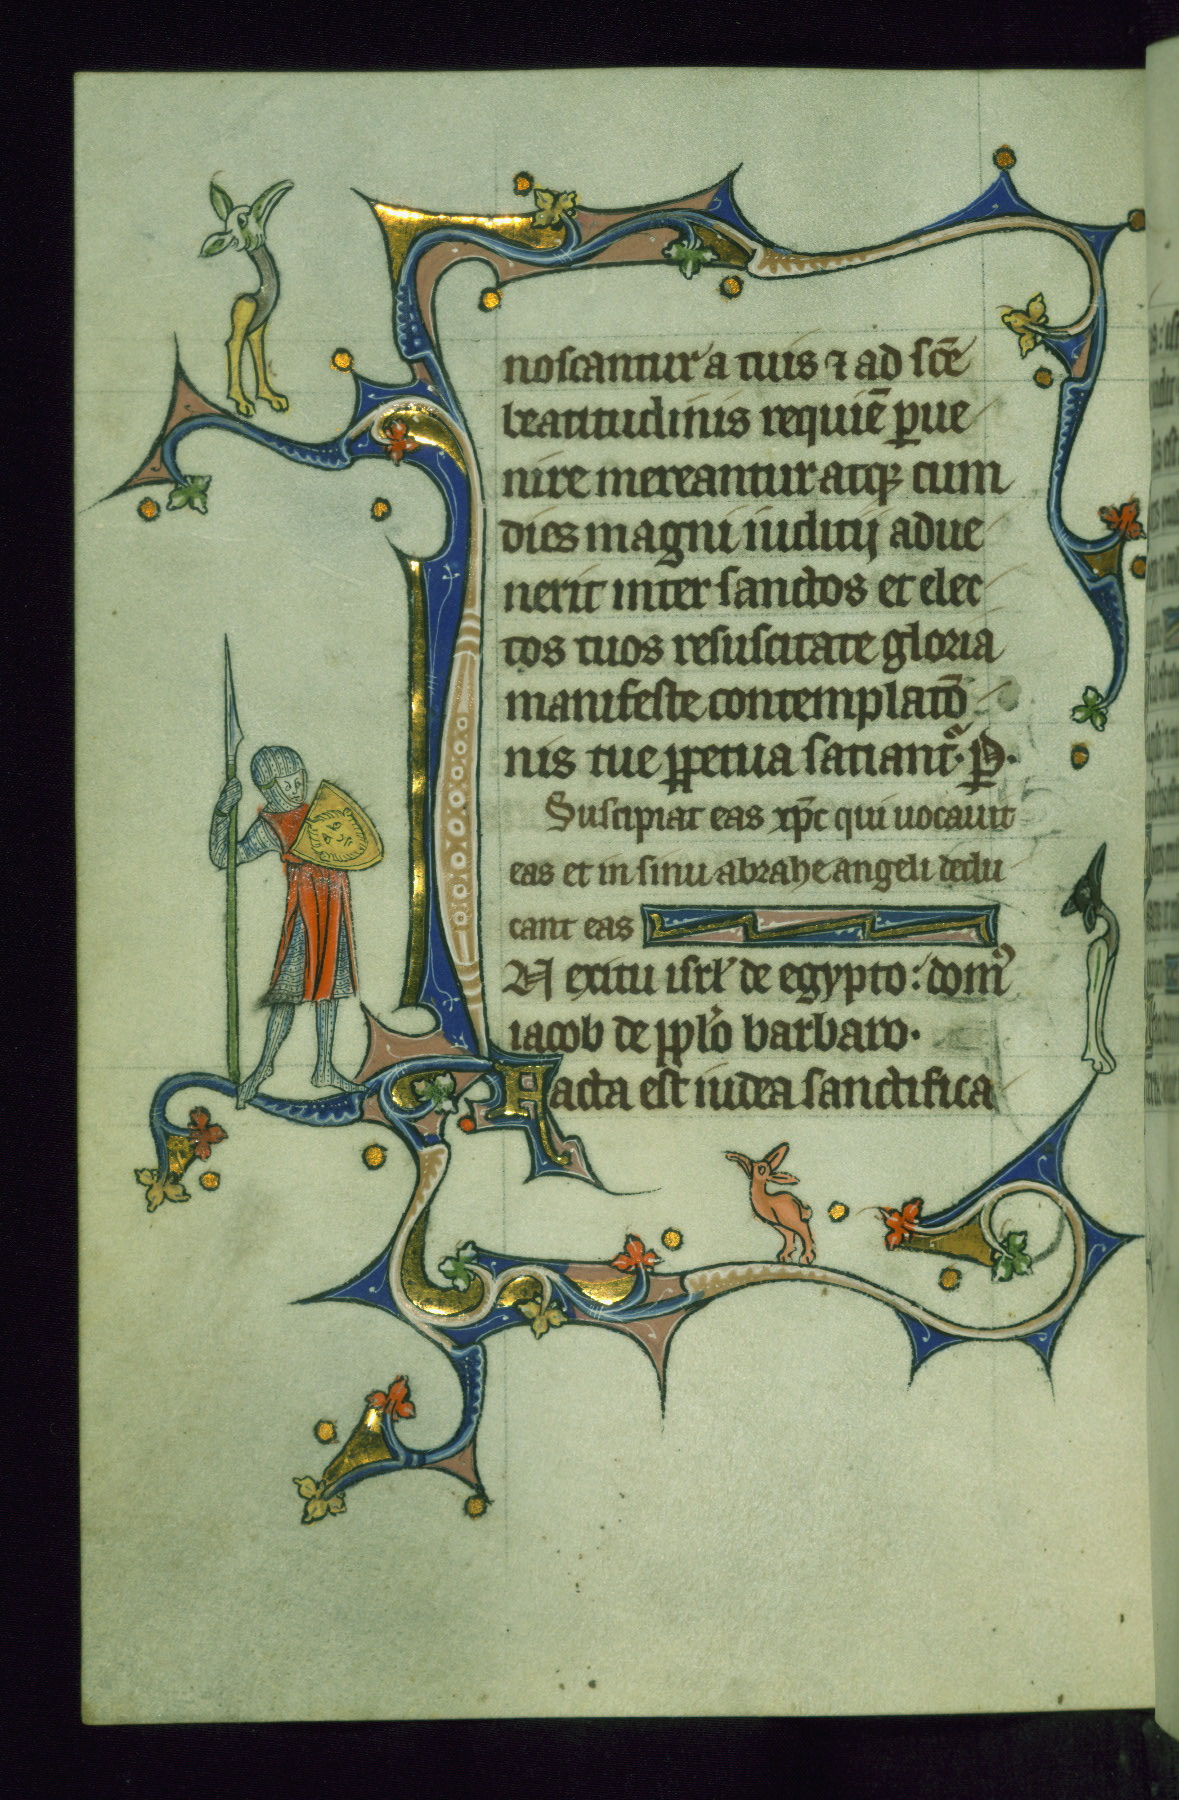 noscantur a tuis ⁊ ad scē
beatitudinis requiē ꝑue
nire mereantur atqꝫ cum
dies magni iuditij adue
nerit inter sanctos et elec
tos tuos resuscitate gloria
manifeste contemplatō
nis tue ꝑpetua satiant᷑. p̄.
Suscipiat eas xp̄c qui uocauit
eas et in sinu abrahe angeli dedu
cant eas
N exitu isrl̓ de egypto: domꝰ
iacob de ppl̓o barbaro.
Facta est iudea sanctifica